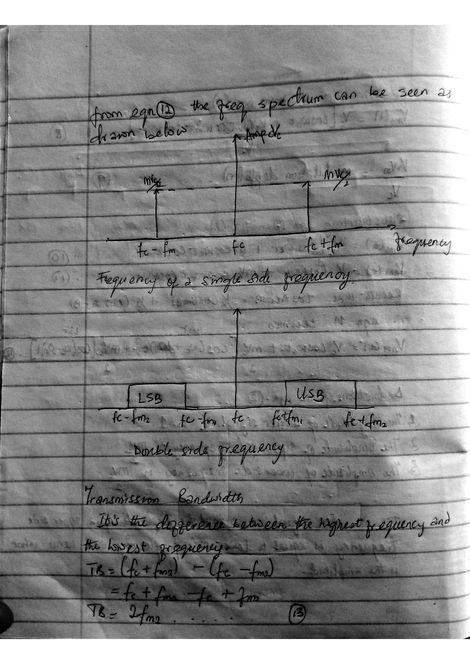 from eqn (12) the freq spectrum can be seen as
drawn below
Amp Vc
mVc/2
mVc/2
fc - fm
fc
fc + fm
frequency
Frequency of a single side frequency
LSB
USB
fc - fm2
fc - fm1
fc
fc + fm1
fc + fm2
Double side frequency
Transmission Bandwidth
It's the difference between the highest frequency and
the lowest frequency
TB = (fc + fm2) - (fc - fm2)
= fc + fm2 - fc + fm2
TB = 2fm2 ........ (13)